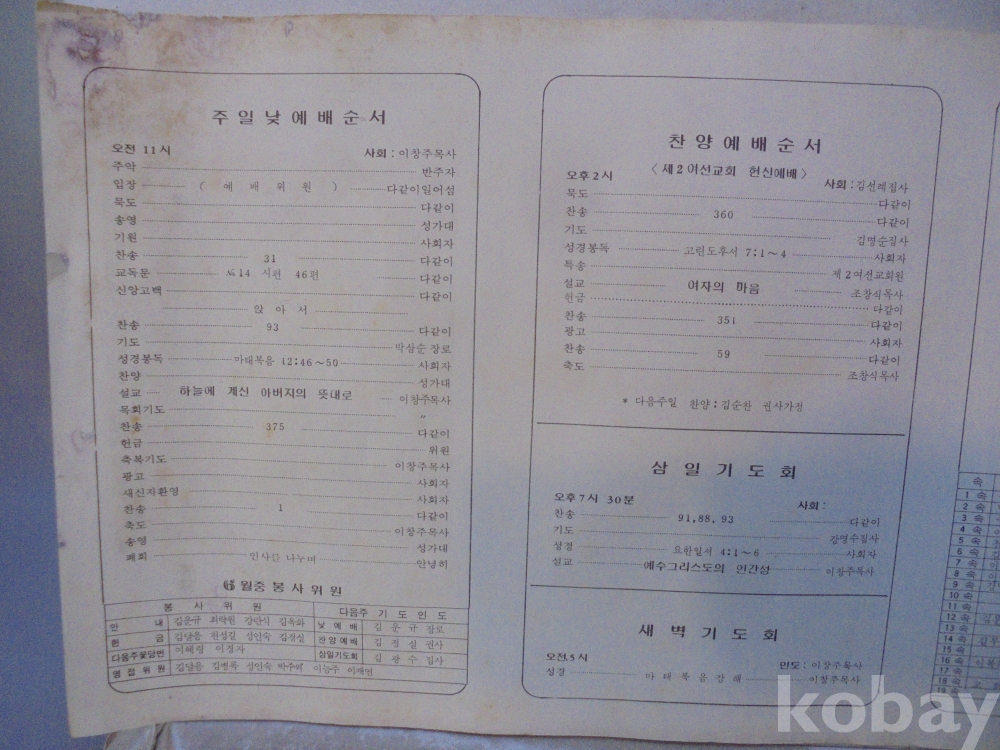 주일낮예배순서
오전 11시 사회 : 이창주목사
주악 반주자
입장 ( 예 배 위 원 ) 다같이일어섬
묵도 다같이
송영 성가대
기원 사회자
찬송 31 다같이
교독문 №14 시편 46편 다같이
신앙고백 다같이
앉 아 서
찬송 93 다같이
기도 박상순 장로
성경봉독 마태복음 12:46~50 사회자
찬양 성가대
설교 하늘에 계신 아버지의 뜻대로 이창주목사
목회기도 〃
찬송 375 다같이
헌금 위원
축복기도 이창주목사
광고 사회자
새신자환영 사회자
찬송 1 다같이
축도 이창주목사
송영 성가대
폐회 인사를 나누며 안녕히
6월중봉사위원
봉 사 위 원 다음주 기 도 인 도
안 내 김운규 최탁원 강란식 김옥화 낮 예 배 김 운 규 장로
헌 금 김달음 천성길 성인숙 김정실 찬양예배 김 정 실 권사
다음주꽃당번 이혜령 이경자 삼일기도회 김 광 수 집사
영 접 위 원 김달음 김병록 성인숙 박주희 이능주 이재연
찬양예배순서
〈제2여선교회 헌신예배〉
오후2시 사회 : 김선례집사
묵도 다같이
찬송 360 다같이
기도 김명순집사
성경봉독 고린도후서 7:1~4 사회자
특송 제2여선교회원
설교 여자의 마음 조창식목사
헌금 다같이
찬송 351 다같이
광고 사회자
찬송 59 다같이
축도 조창식목사
* 다음주일 찬양 : 김순찬 권사가정
삼일기도회
오후7시 30분 사회 :
찬송 91,88,93 다같이
기도 강명수집사
성경 요한일서 4:1~6 사회자
설교 예수그리스도의 인간성 이창주목사
새벽기도회
오전.5시 인도 : 이창주목사
성경 마 태 복 음 강 해 이창주목사
속
1 속
2 속
3 속
4 속
5 속
6 속
7 속
8 속
9 속
10 속
11 속
12 속
13 속
14 속
15 속
16 속
17 속
18 속
19 속
kobay